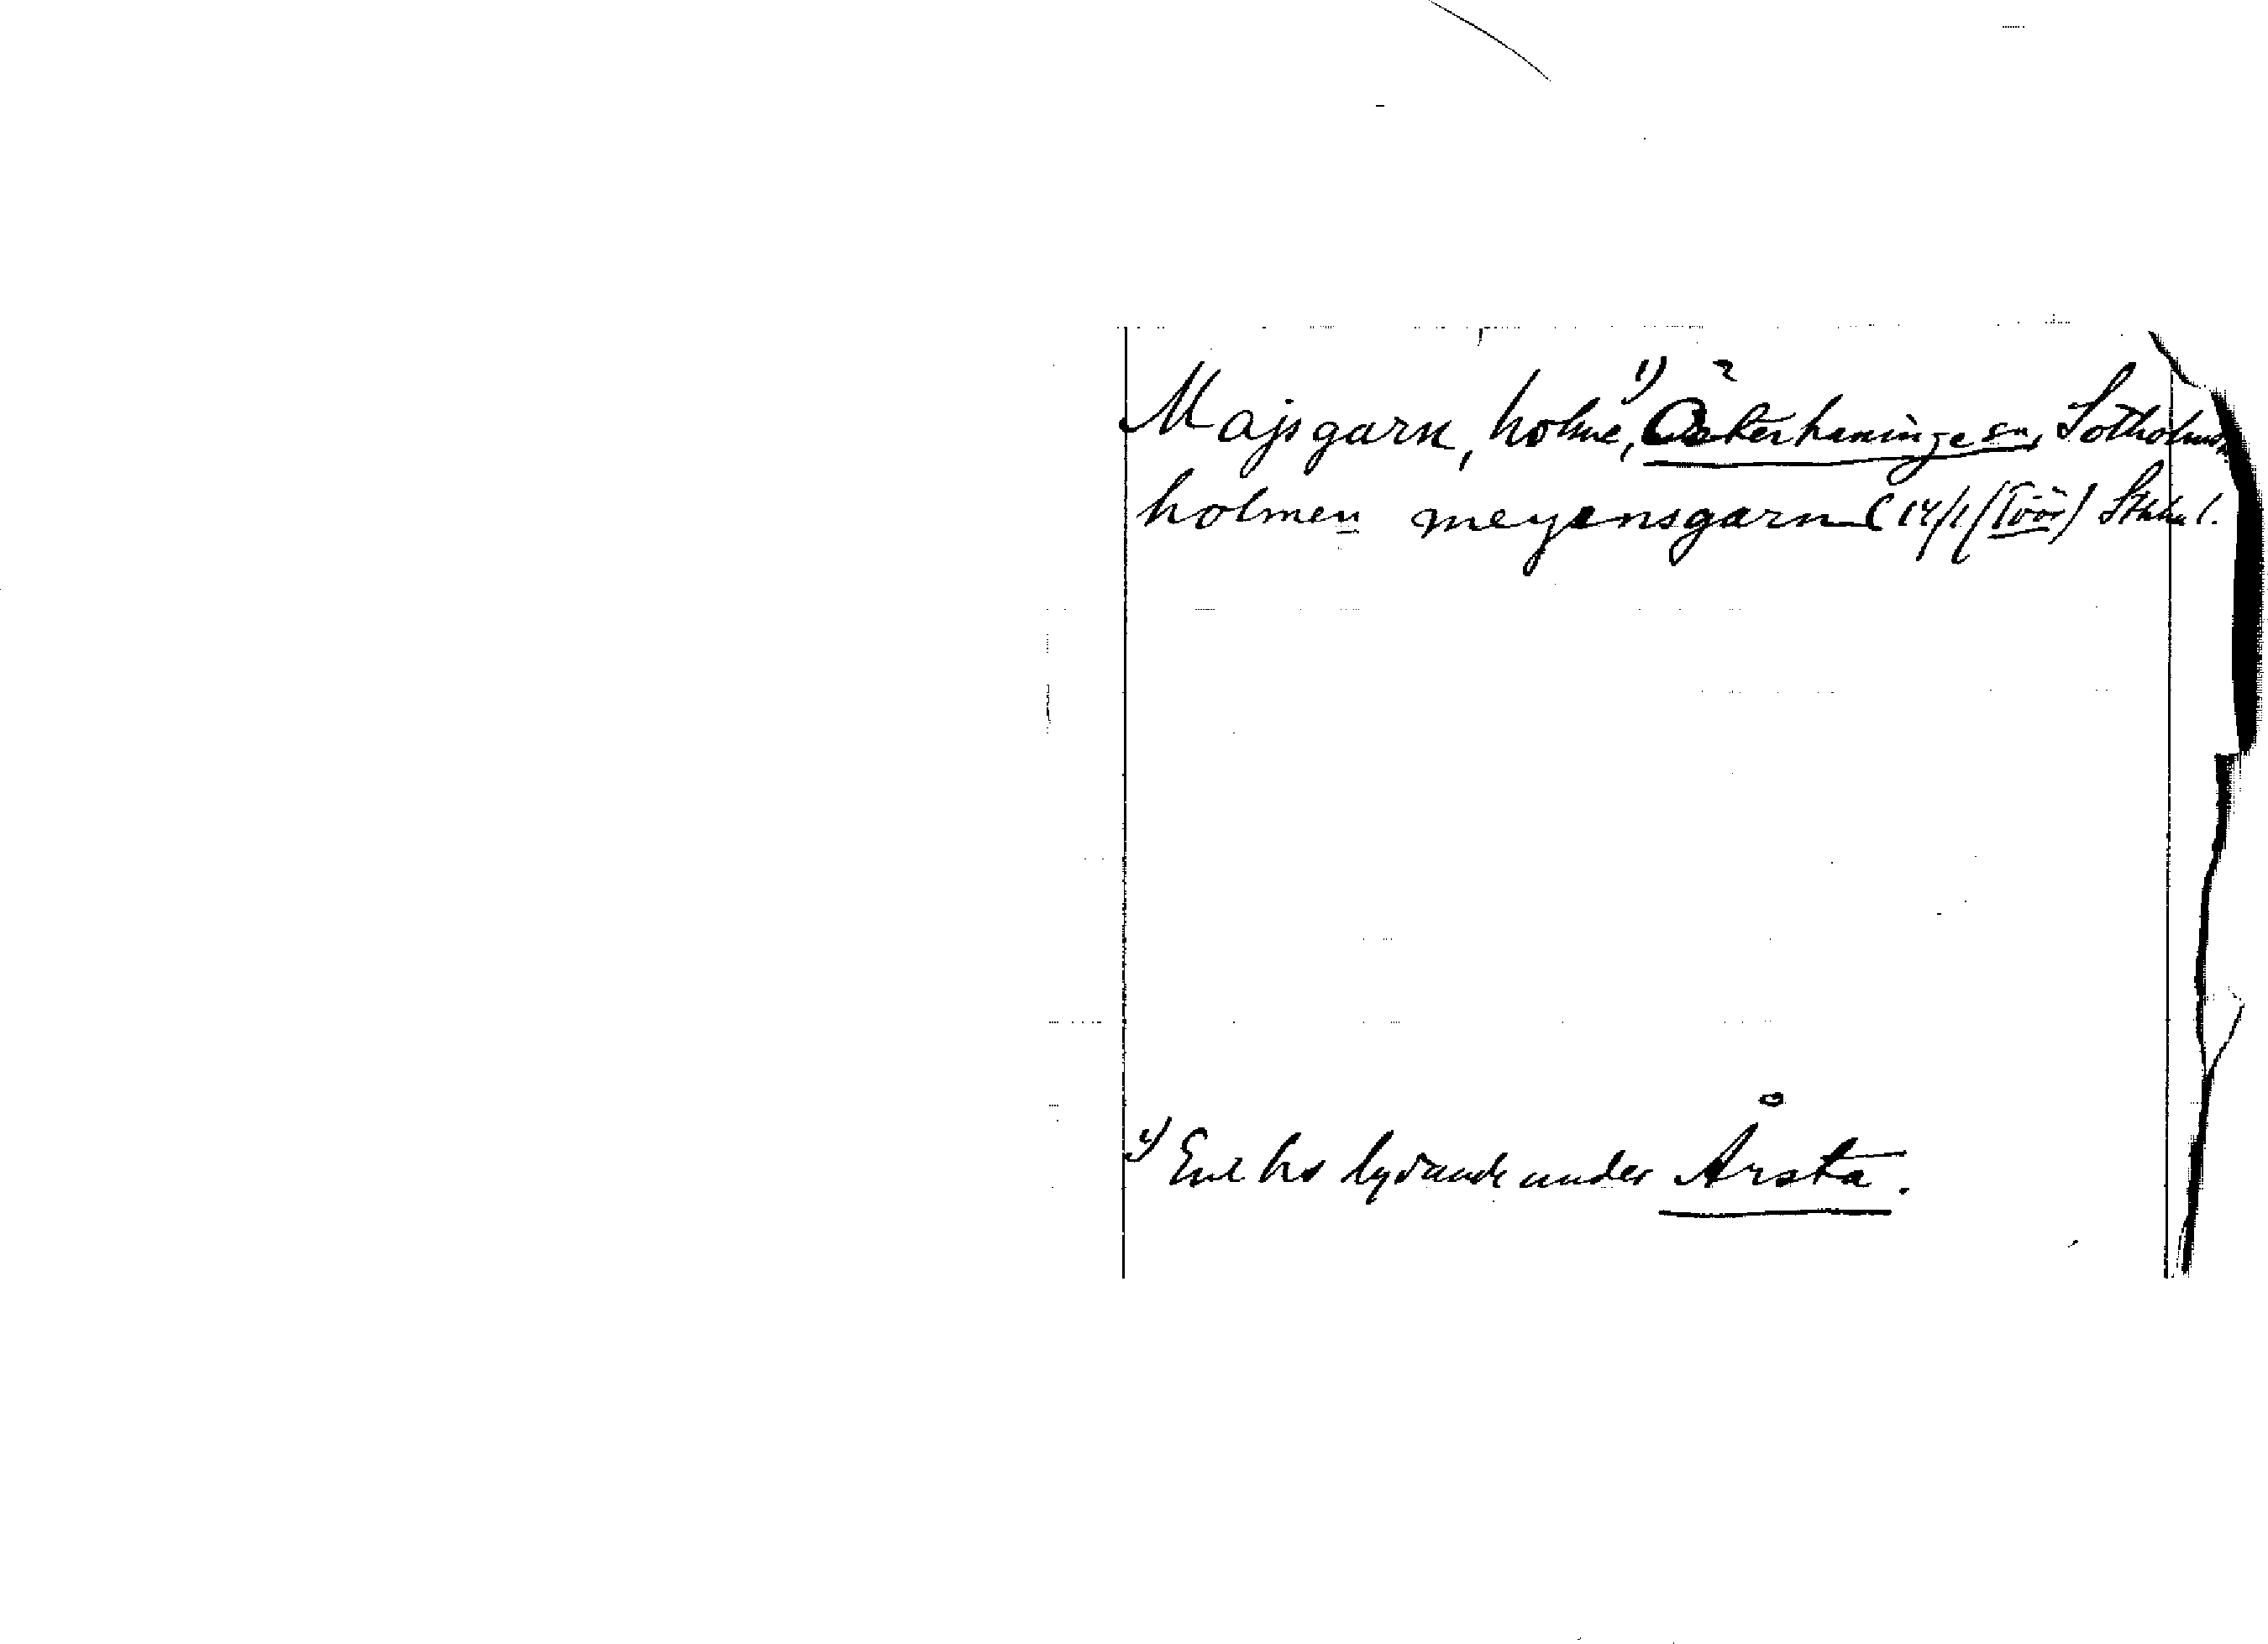 Majsgarn, holme,¹⁾ Österhaninge sn, Sotholms
holmen meyensgarn (14/1 (Töör) Sthlm l.
¹⁾ Enl hs lydande under Årsta.